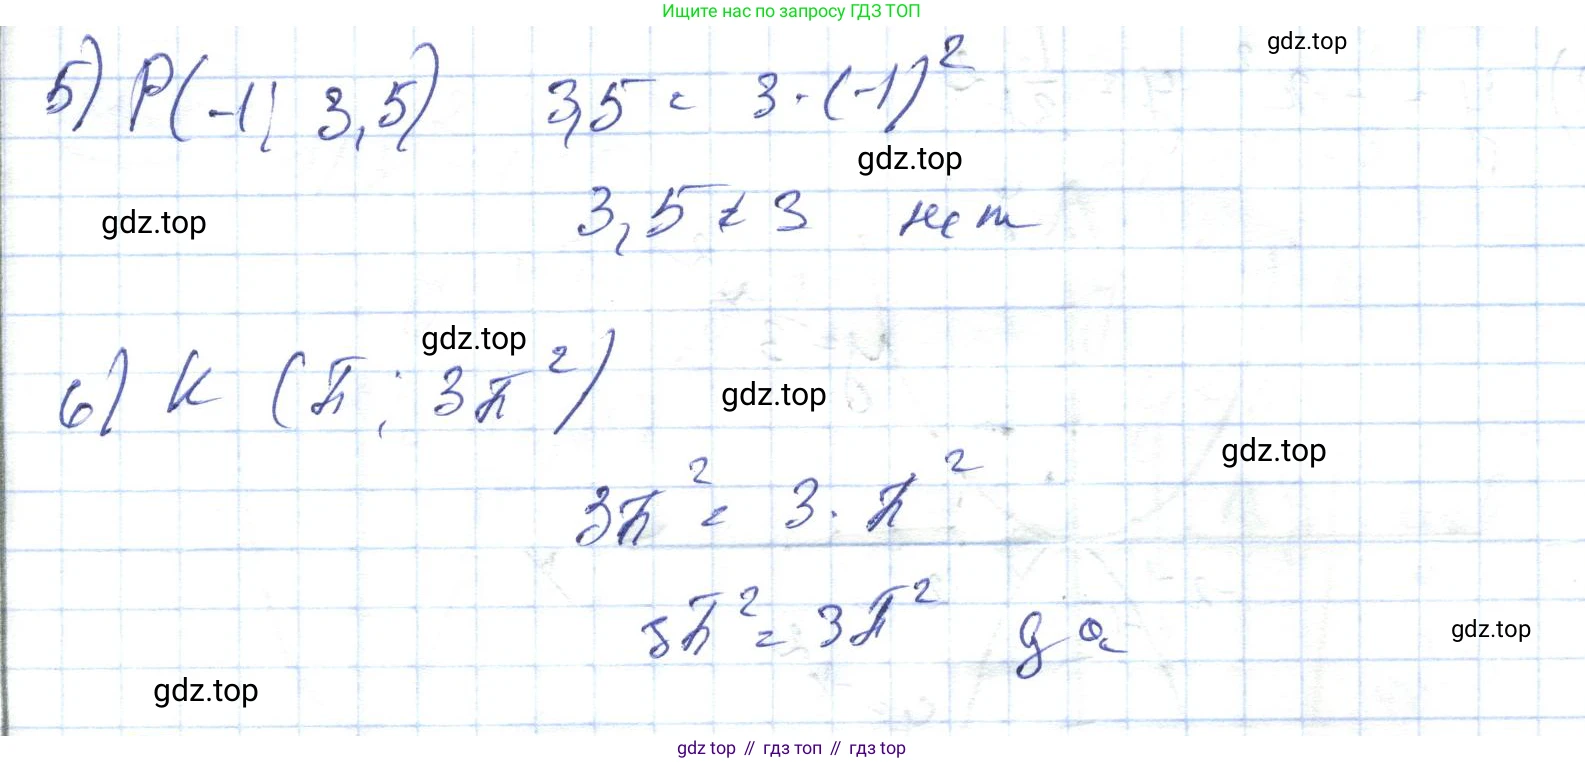 Ищите нас по запросу ГДЗ ТОП
gdz.top
5) P(-1; 3,5) 3,5 = 3·(-1)²
gdz.top
3,5 ≠ 3 нет
gdz.top
gdz.top
6) K (π; 3π²)
gdz.top
gdz.top
3π² = 3·π²
3π² = 3π² да
gdz.top
gdz.top
gdz top // гдз топ // гдз top